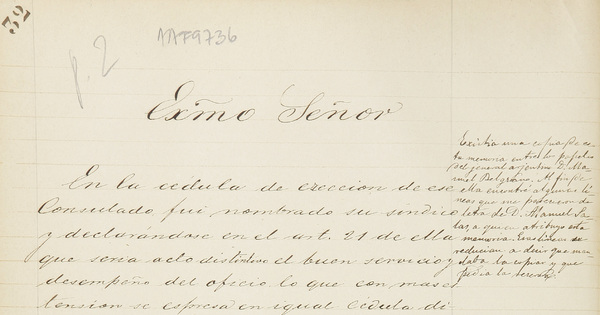 32
p. 2
AAF9736
Exmo Señor
En la cédula de ereccion de ese
Consulado fui nombrado su síndico
y declarándose en el art. 21 de ella
que seria acto distintivo el buen servicio y
desempeño del oficio lo que con mas es
tension se espresa en igual cédula di
Existia una copia de es
ta memoria entre los papeles
del general argentino D. Ma
nuel Belgrano. Al pie de
ella encontré algunas lí
neas que me parecieron de
letra de D. Manuel Sa
las, a quien atribuyo esta
memoria. Esas líneas se
reducian a decir que man
daba la copia y que
pedia la